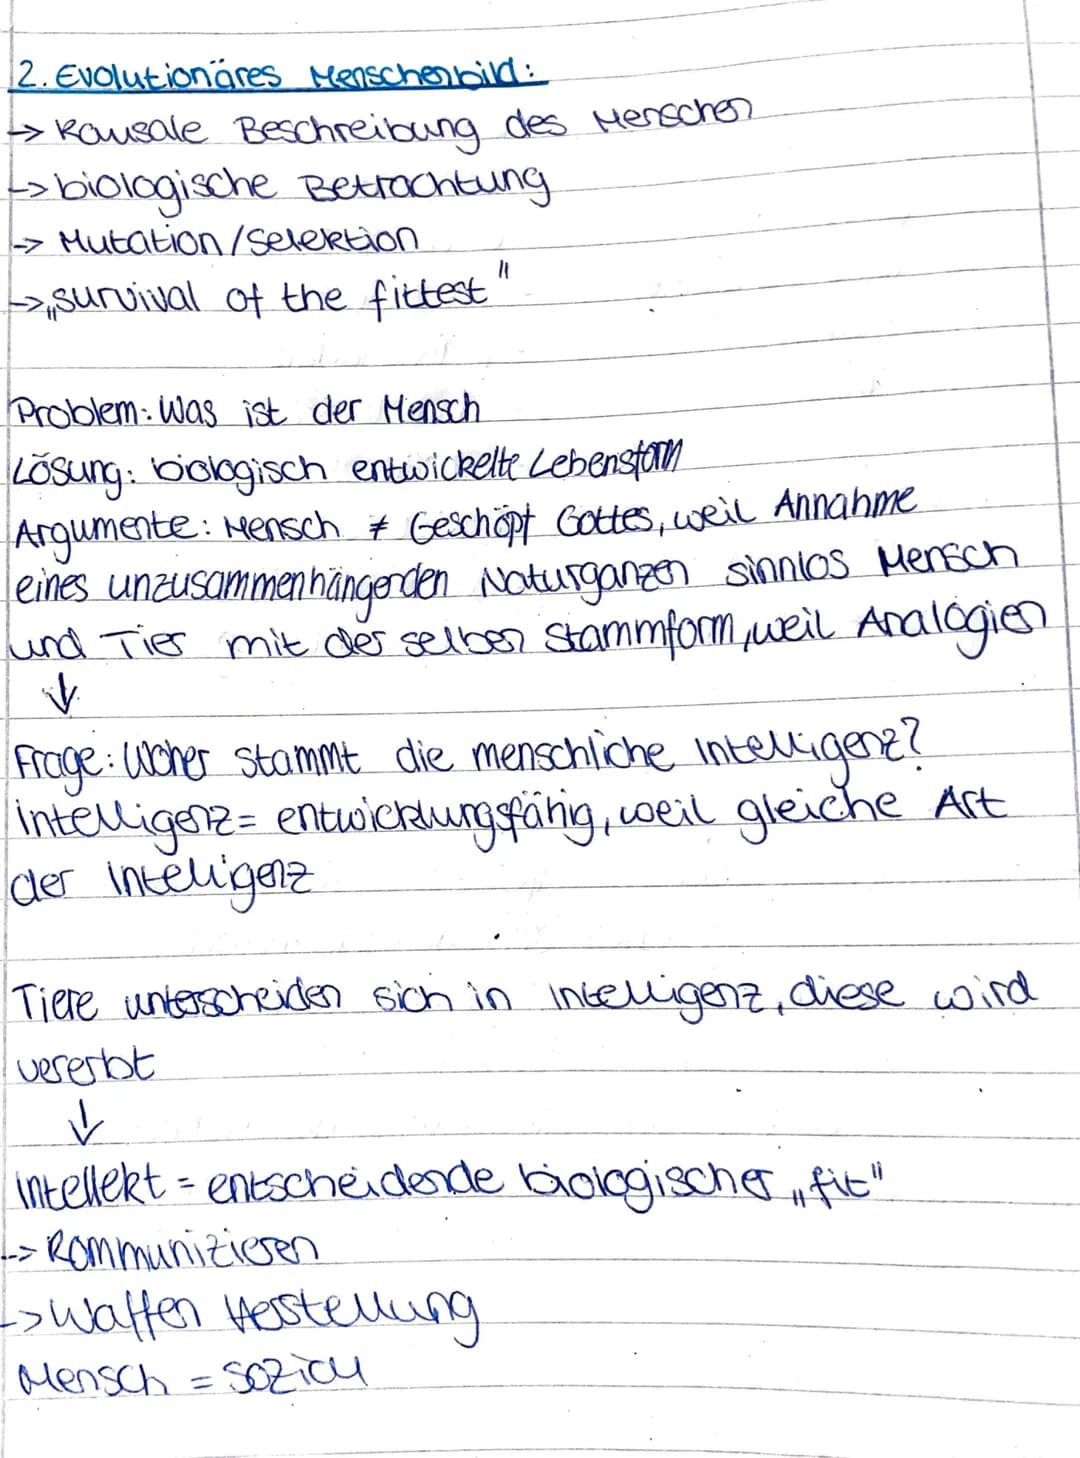 2. Evolutionäres Menschenbild:
→ Kausale Beschreibung des Menschen
→ biologische Betrachtung
→ Mutation/Selektion
→ „survival of the fittest"
Problem: Was ist der Mensch
Lösung: biologisch entwickelte Lebensform
Argumente: Mensch ≠ Geschöpf Gottes, weil Annahme
eines unzusammenhängenden Naturganzen sinnlos Mensch
und Tier mit der selben Stammform, weil Analogien
↓
Frage: Woher stammt die menschliche Intelligenz?
Intelligenz = entwicklungsfähig, weil gleiche Art
der Intelligenz
Tiere unterscheiden sich in Intelligenz, diese wird
vererbt
↓
Intellekt = entscheidende biologischer „fit"
→ Kommunizieren
→ Waffen Herstellung
Mensch = sozial